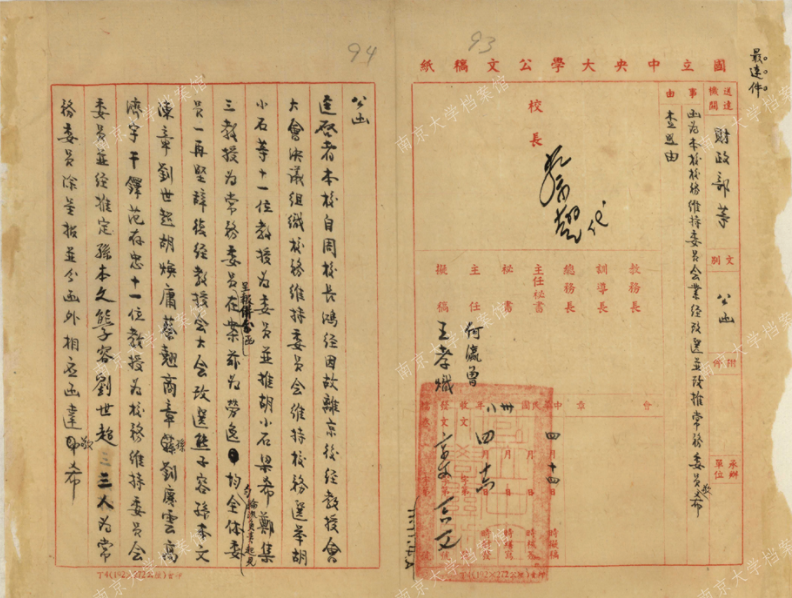 93
國立中央大學公文稿紙
最速件
送達機關
財政部等
文別
公函
附件
事由
函為本校校務維持委員會業經改選並改推常務委員敬希查照由
承辦單位
校長
代
教務長
訓導長
總務長
主任秘書
秘書
主任
何瀛曾
擬稿
王孝熾
中華民國卅八年
四月十四日
94
公函
逕啓者本校自周校長鴻經因故離京後經教授會
大會決議組織校務維持委員會維持校務選舉胡
小石等十一位教授為委員並推胡小石梁希鄭集
三教授為常務委員在案茲為勞逸均全体委
員一再堅辭後經教授會大會改選熊子容孫本文
陳章劉世超胡煥庸蔡翹商章孫劉慶雲高
濟宇干鐸范存忠十一位教授為校務維持委員會
委員並經推定孫本文熊子容劉世超三人為常
務委員除呈報並分函外相應函達敬希